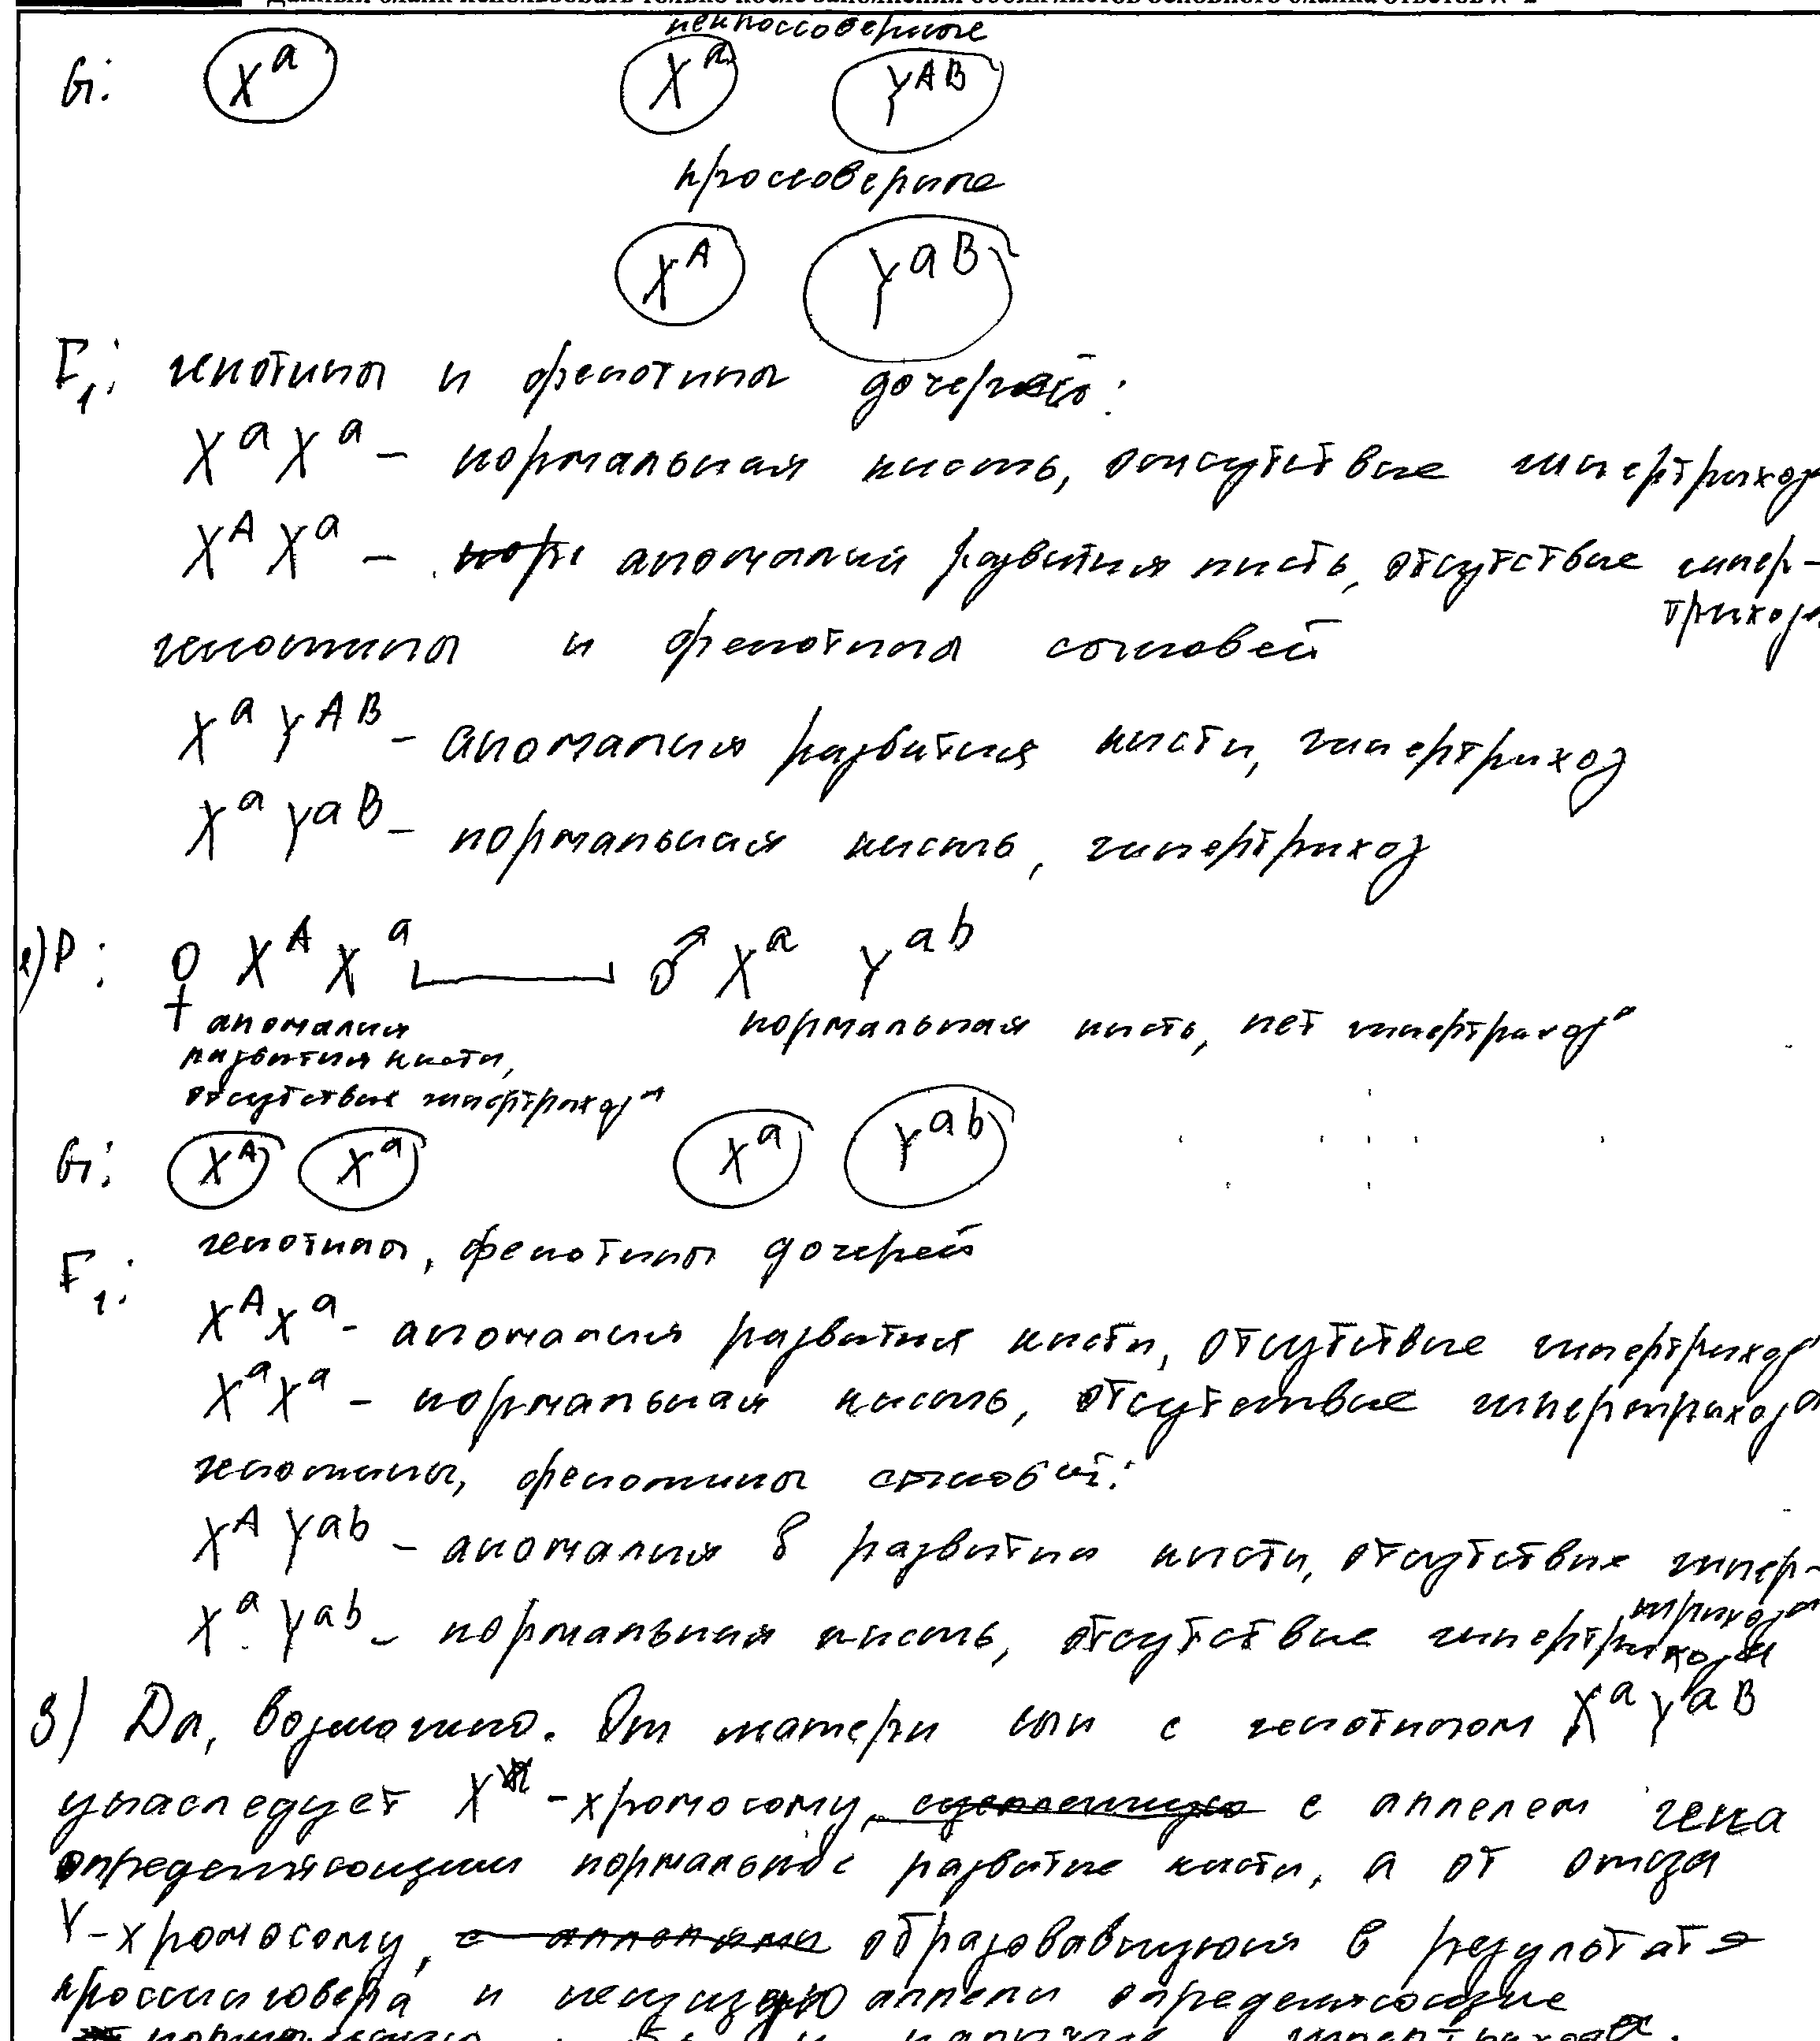 некроссоверные
G: X^a X^a Y^AB
кроссоверные
X^A Y^aB
F1: генотипы и фенотипы дочерей:
X^a X^a – нормальная кисть, отсутствие гипертрихоз
X^A X^a – аномалии развития кисть, отсутствие гипер-
трихоза
генотипы и фенотипы сыновей
X^a Y^AB – аномалия развития кисти, гипертрихоз
X^a Y^aB – нормальная кисть, гипертрихоз
2) P: ♀ X^A X^a ♂ X^a Y^ab
аномалия нормальная кисть, нет гипертрихоза
развития кисти,
отсутствие гипертрихоза
G: X^A X^a X^a Y^ab
генотипы, фенотипы дочерей
F1:
X^A X^a – аномалия развития кисти, отсутствие гипертрихоза
X^a X^a – нормальная кисть, отсутствие гипертрихоза
генотипы, фенотипы сыновей:
X^A Y^ab – аномалия в развитии кисти, отсутствие гипер-
трихоза
X^a Y^ab – нормальная кисть, отсутствие гипертрихоза
3) Да, возможно. От матери сын с генотипом X^a Y^aB
унаследует X -хромосому, с аллелем гена
определяющим нормальное развитие кисти, а от отца
Y-хромосому, образовавшуюся в результате
кроссинговера и несущую аллели определяющие